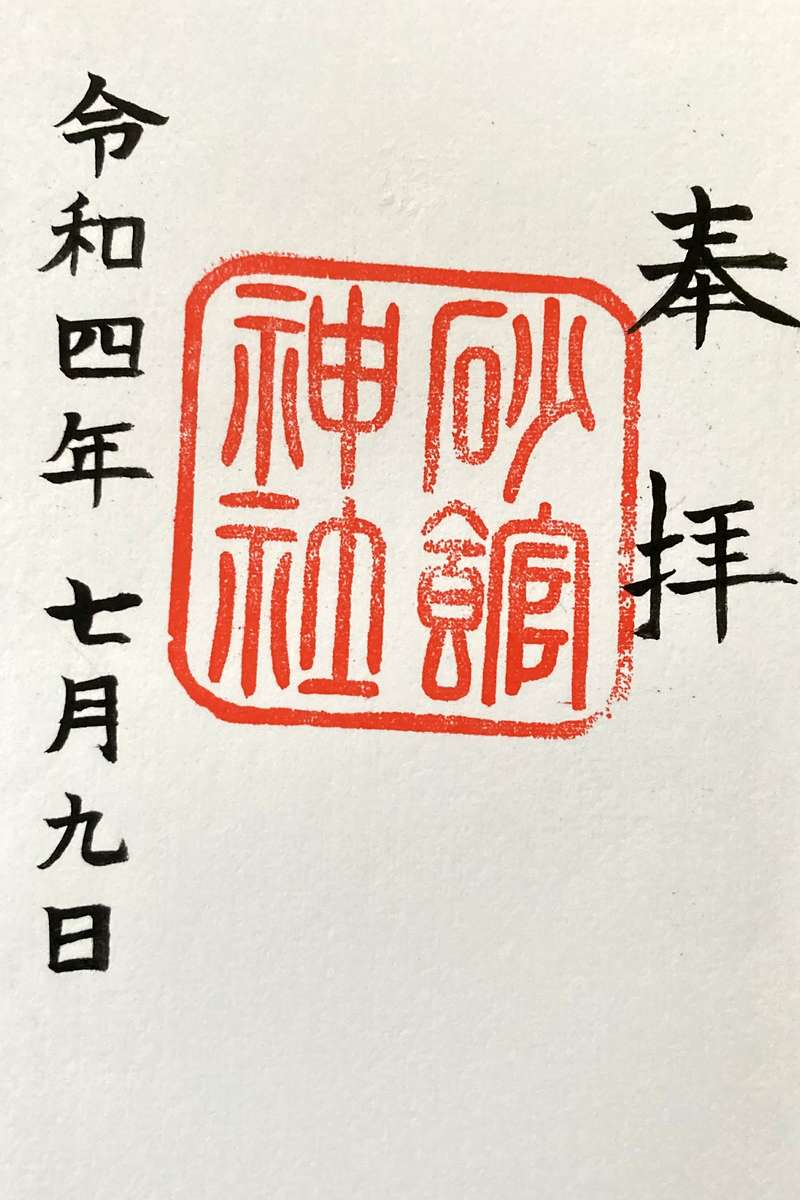 奉拝
砂館
神社
令和四年七月九日